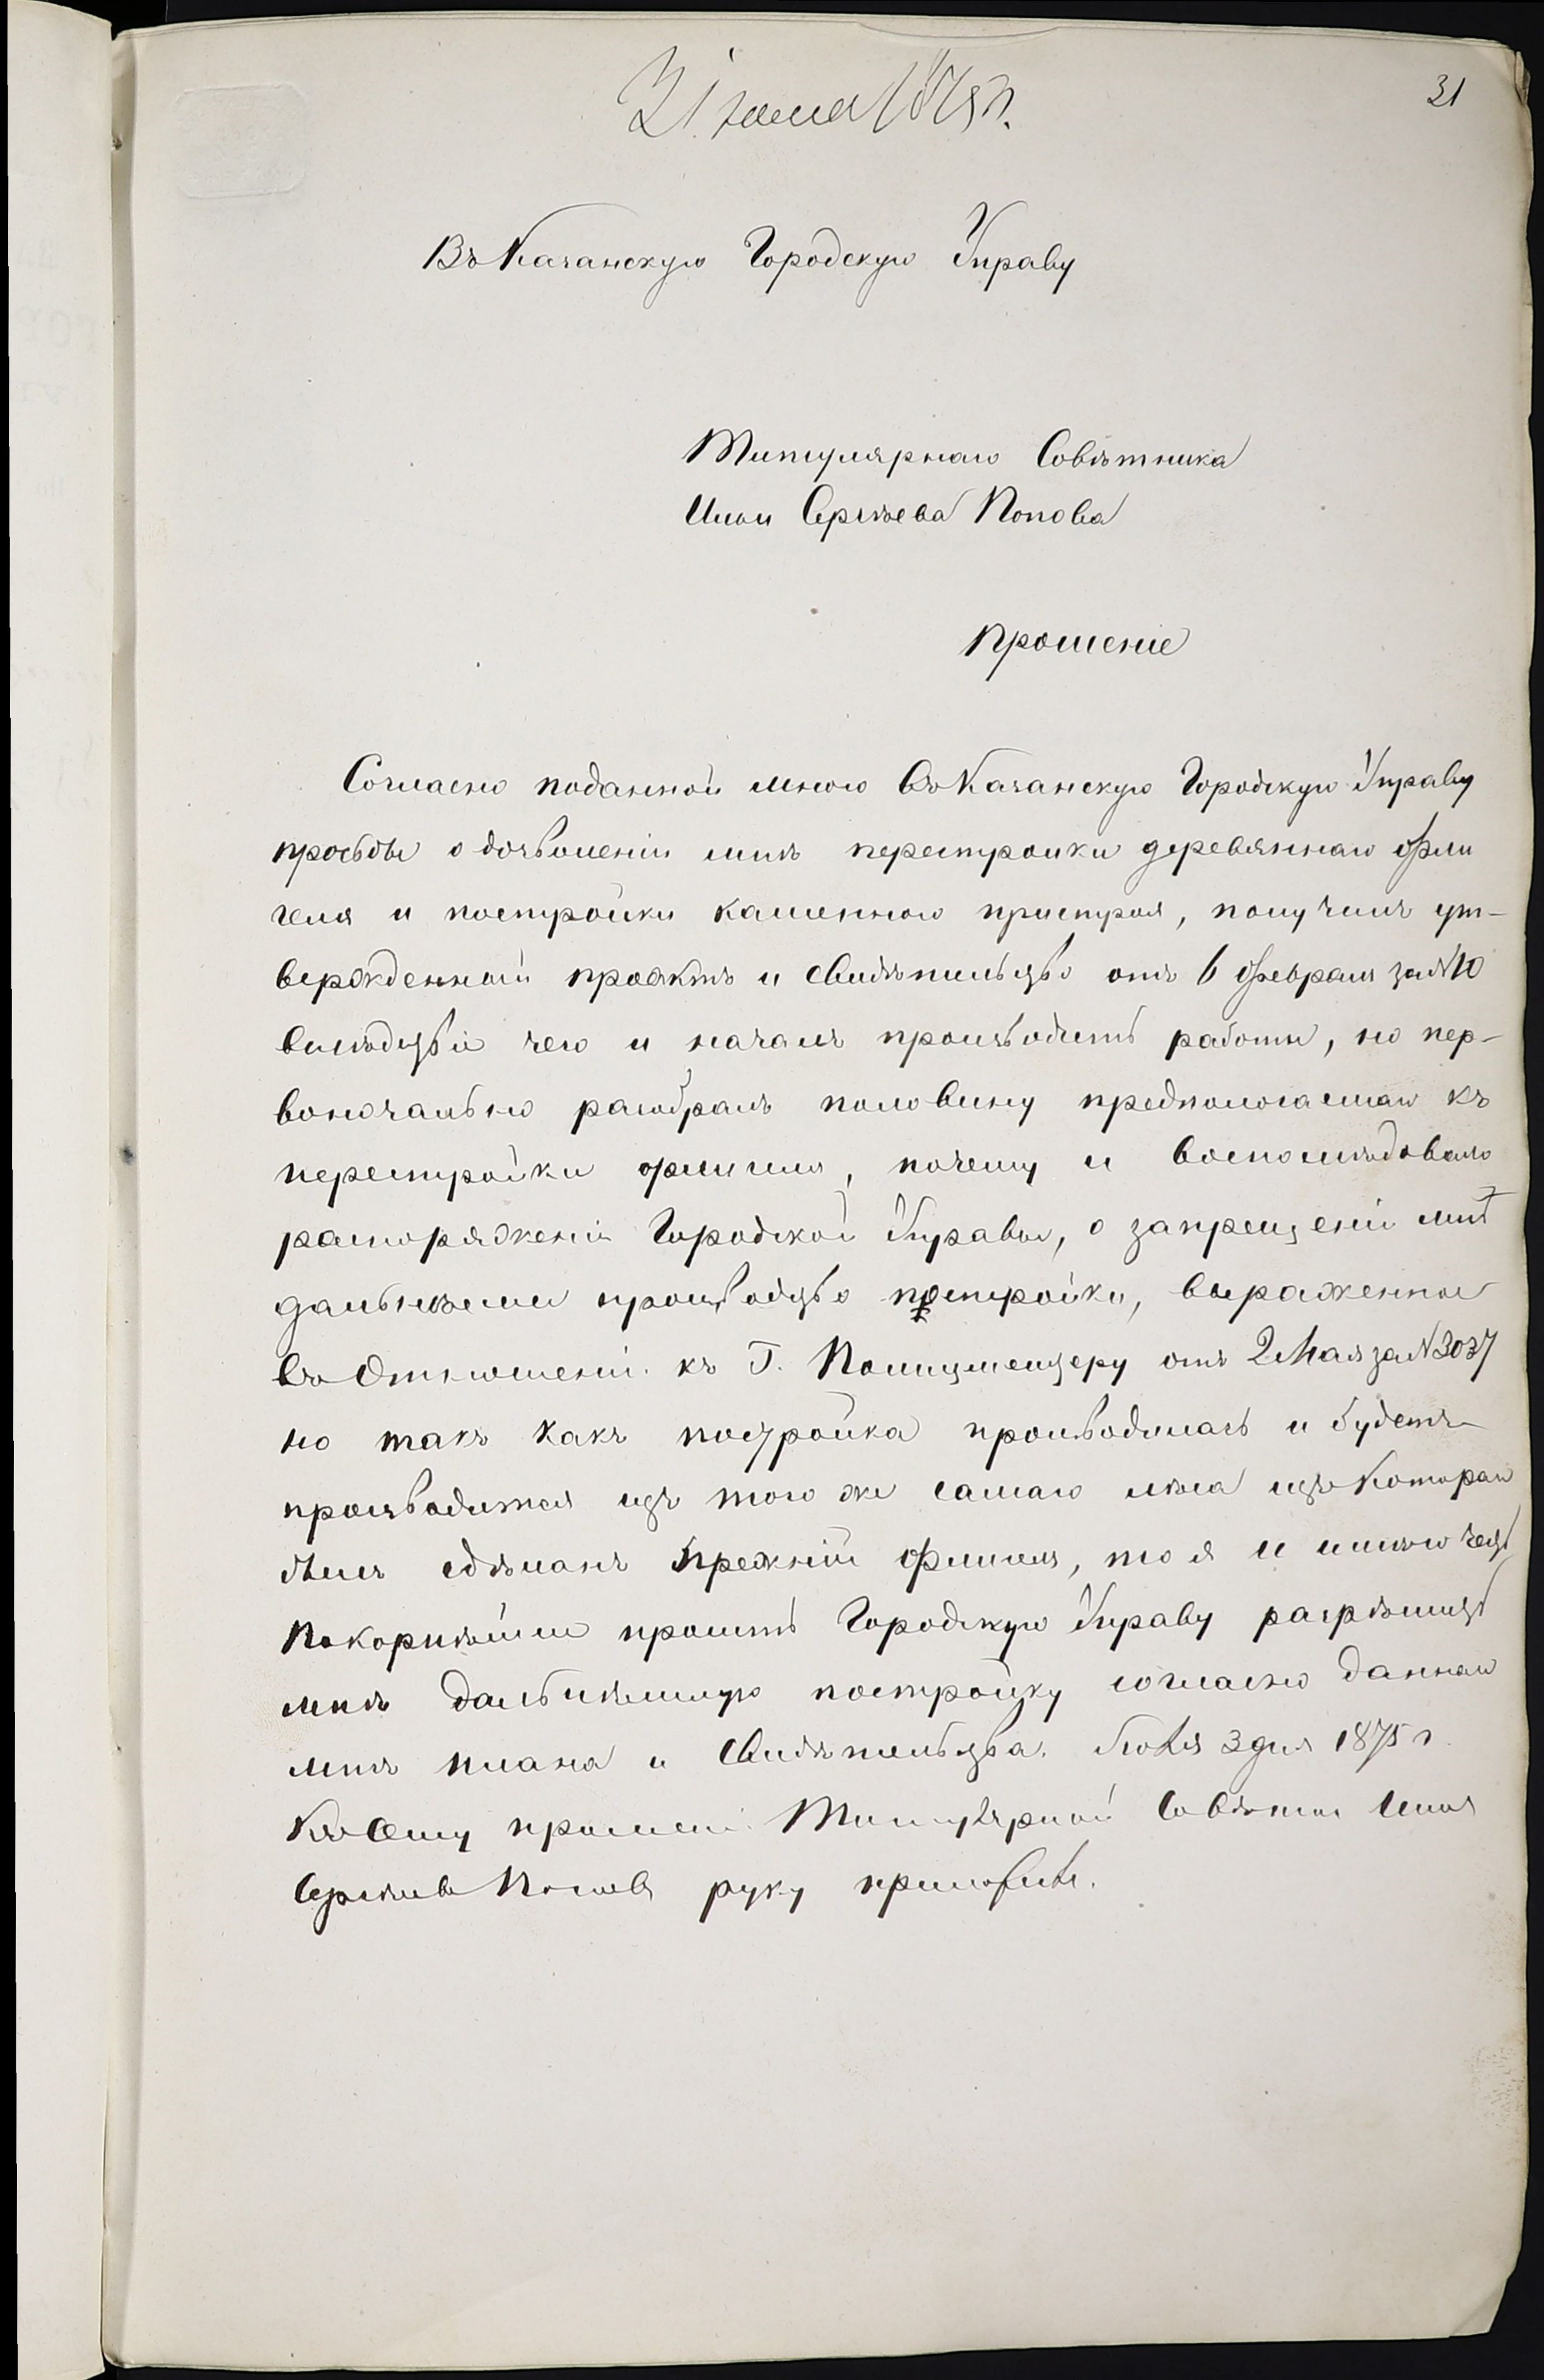 31
Въ Казанскую Городскую Управу
Титулярнаго Совѣтника
Ильи Сергѣева Попова
Прошеніе
Согласно поданной мною въ Казанскую Городскую Управу
просьбы о дозволеніи мнѣ перестройки деревяннаго фли
геля и постройки каменнаго пристроя, получилъ ут-
вержденный проэктъ и свидѣтельство отъ 6 февраля за №10
вслѣдствіе чего и началъ производить работы, но пер-
воначально разобралъ половину предпологаемаго къ
перестройки флигеля, почему и воспослѣдовало
распоряженія Городской Управы, о запрещеніи мнѣ
дальнѣеми производство постройки, выраженны
въ Отношеніи къ Г. Полицмейстеру отъ 2 Мая за №3037
но такъ какъ постройка производилась и будетъ
производится изъ того же самаго лѣса изъ котораго
былъ сдѣланъ прежній флигель, то я и имѣю честь
Покорнѣйше просить Городскую Управу разрѣшить
мнѣ дальнѣйшую постройку согласно даннаго
мнѣ плана и свидѣтельства. Іюня 3 дня 1875 г.
Къ сему прошенію Титулярной Совѣтни Илья
Сергѣевъ Поповъ руку приложилъ.